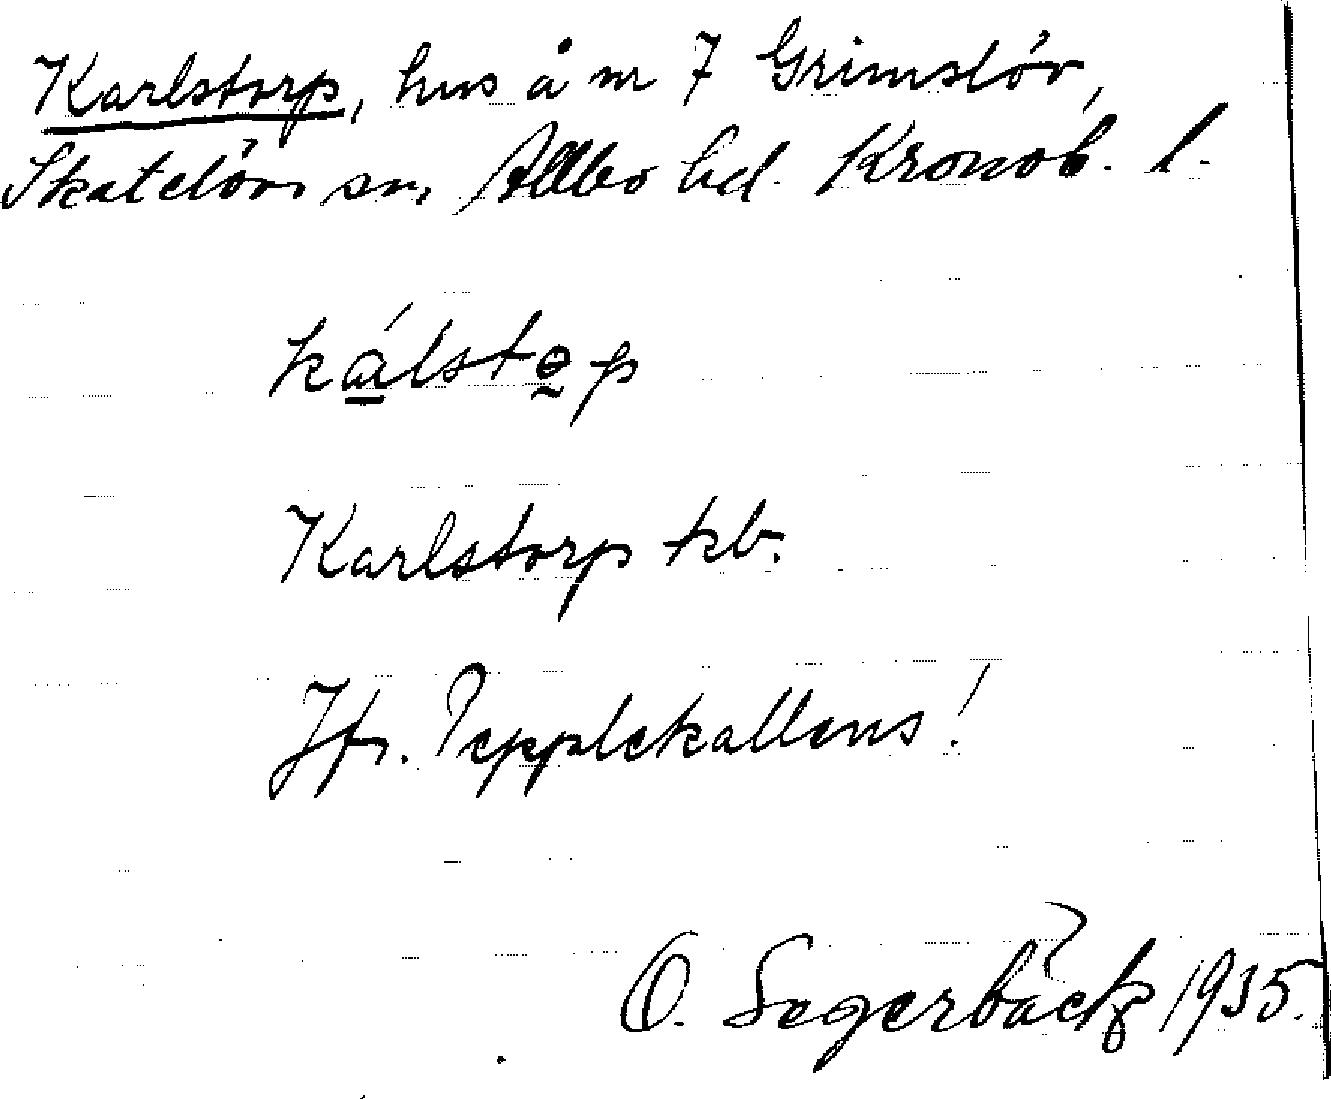 Karlstorp, hus å nr 7 Grimslöv,
Skatelövs sn, Allbo hd. Kronob. l.
kálstep
Karlstorp kb.
Jfr. Pepplekallens!
O. Segerbäck 1935.